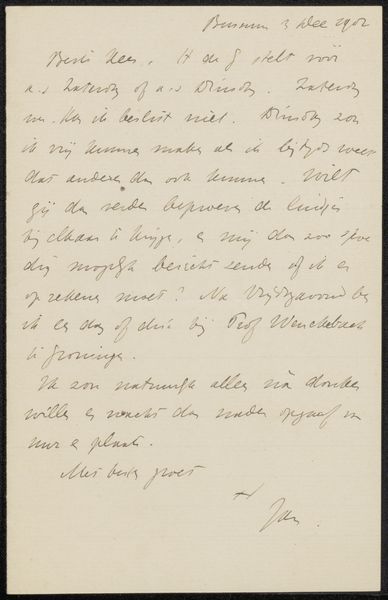 Bussum 3 Dec 1902
Beste Kees, H de G stelt voor
a.s Zaterdag of a.s Dinsdag. Zaterdag
kan ik beslist niet. Dinsdag zou
ik vrij kunnen maken als ik bijtijds weet
dat anderen dan ook kunnen. Wilt
gij dan verder beproeven de luidjes
bij elkaar te krijgen, en mij dan zoo spoe
dig mogelijk bericht zenden of ik er
op rekenen moet? Na Vrijdagavond ben
ik een dag of drie bij Prof Wenckebach
te Groningen.
Ik zou natuurlijk alles na donker
willen en wacht dan nader opgaaf van
uur en plaats.
Met beste groet
Jan.